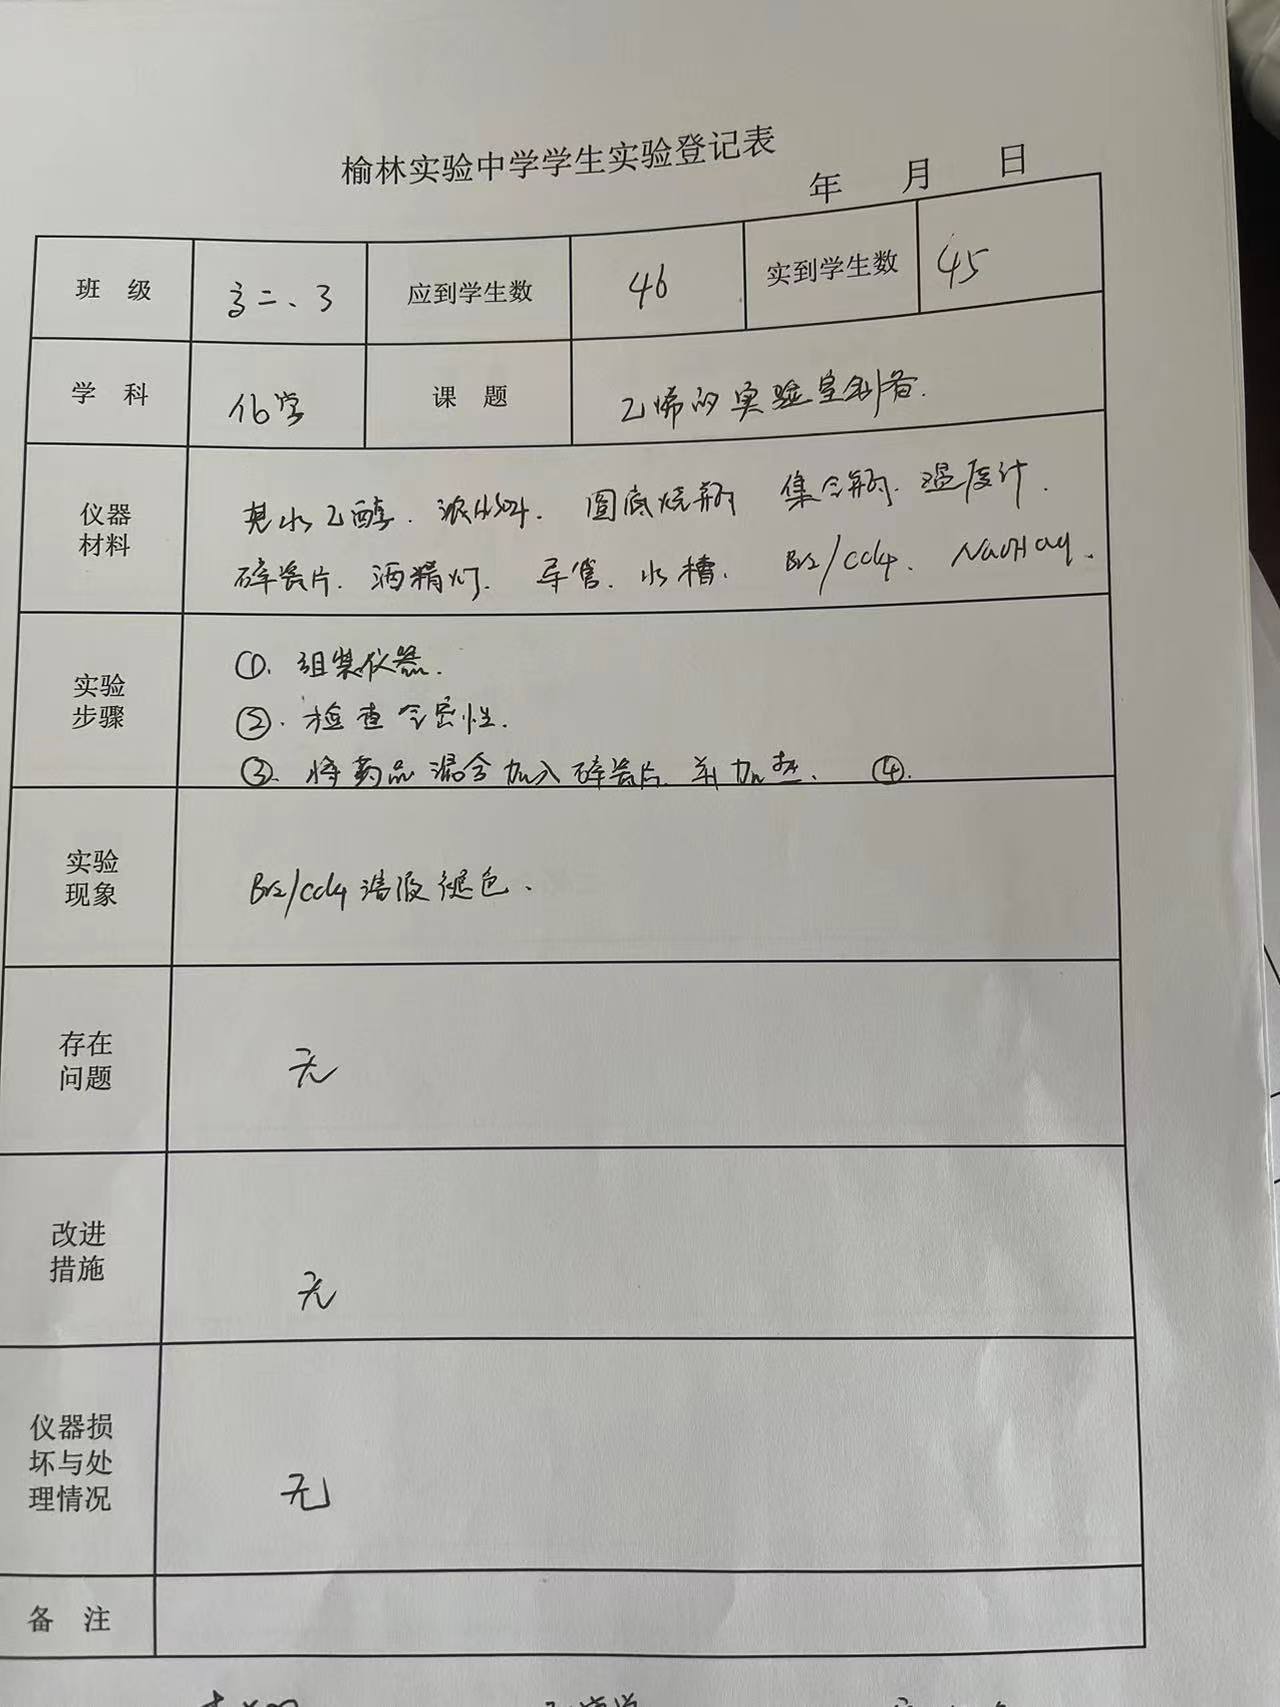 榆林实验中学学生实验登记表
年 月 日
班 级 高二、3 应到学生数 46 实到学生数 45
学 科 化学 课 题 乙烯的实验室制备.
仪器
材料
无水乙醇. 浓H2SO4. 圆底烧瓶 集气瓶. 温度计.
碎瓷片. 酒精灯. 导管. 水槽. Br2/CCl4. NaOH aq.
实验
步骤
①. 组装仪器.
②. 检查气密性.
③. 将药品混合加入碎瓷片. 并加热. ④.
实验
现象
Br2/CCl4溶液褪色.
存在
问题
无
改进
措施
无
仪器损
坏与处
理情况
无
备 注